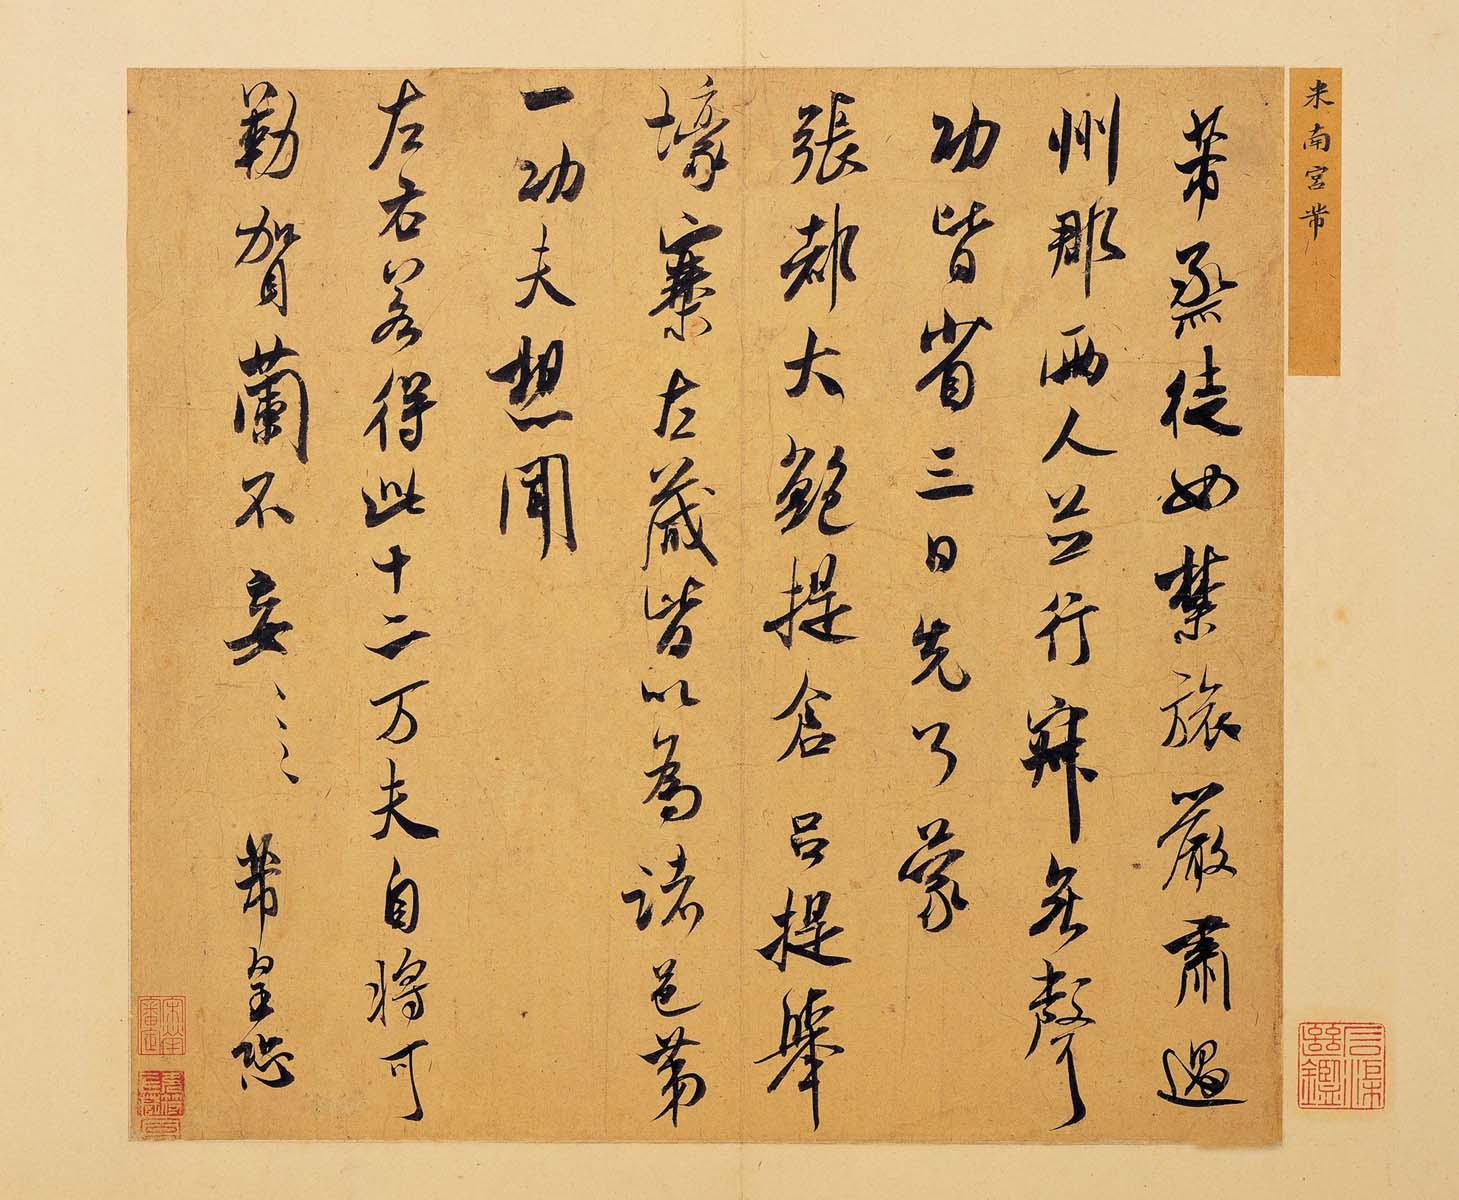 米南宮芾
芾烝徒如禁旅嚴肅過
州郡兩人並行寂無聲
功皆省三日先了蒙
張都大鮑提倉呂提舉
壕寨左藏皆以為諸邑第
一功夫想聞
左右若得此十二万夫自將可
勒賀蘭不妄〻〻芾皇恐
宋犖審定